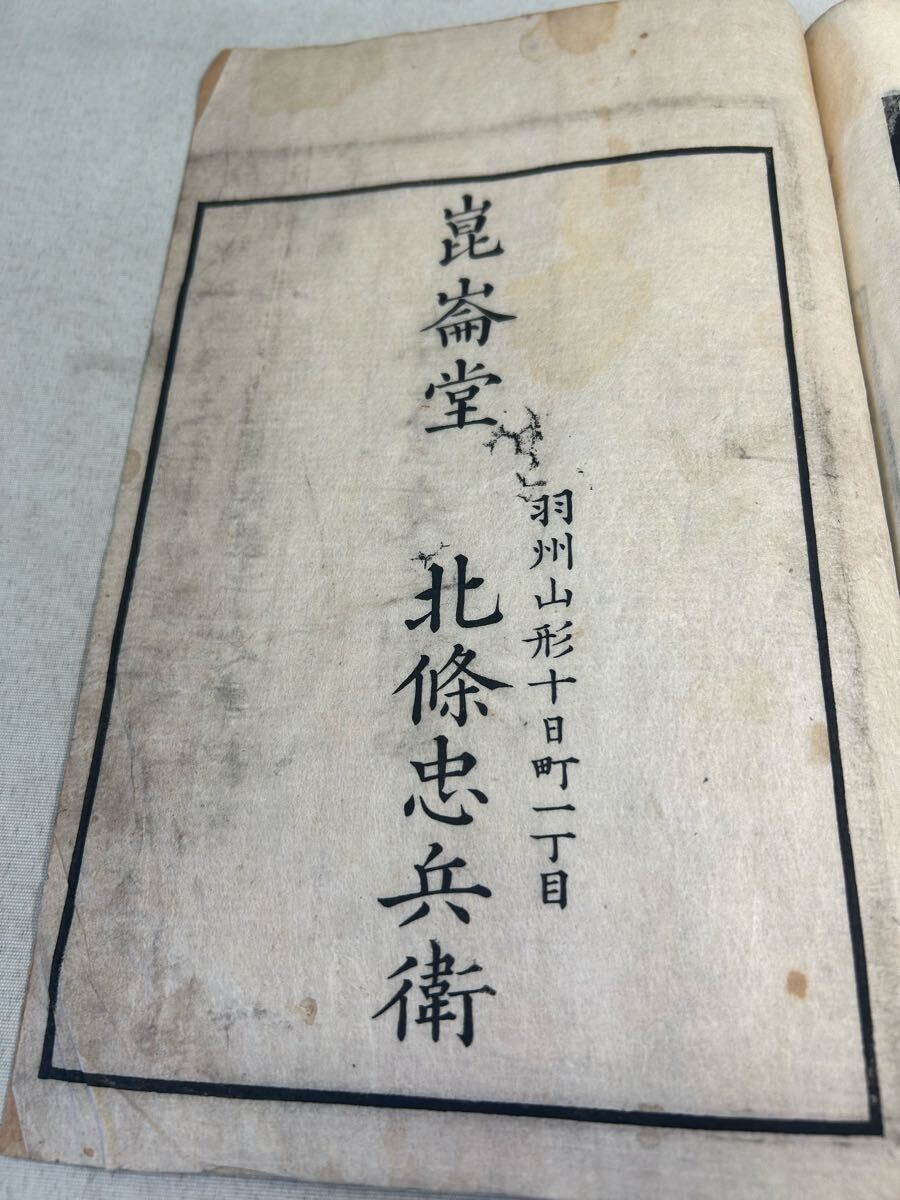 羽州山形十日町一丁目
崑崙堂 北條忠兵衛